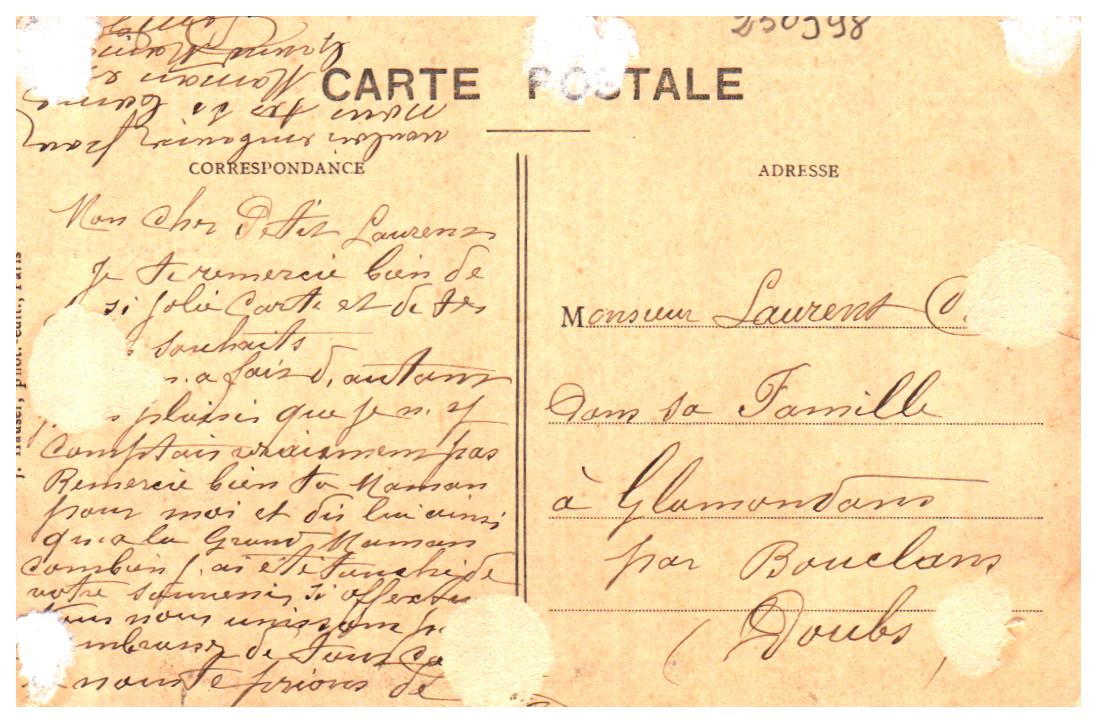 230998
CARTE POSTALE
CORRESPONDANCE
Mon cher Petit Laurent
Je te remercie bien de
si jolie Carte et de tes
souhaits
a fait d'autant
plaisir que je n'y
comptais vraiment pas
Remercie bien ta Maman
pour moi et dis lui ainsi
qu'a la Grand Maman
combien j'ai été touché de
votre souvenir si affectu
nous unissons p
mbrasser de tout Co
nous te prions de
vouloir embrasser pour
nous tes et bonne
Maman
J. Hauser, phot.-édit., Paris
ADRESSE
Monsieur Laurent C.
Dans sa Famille
à Glamondans
par Bouclans
(Doubs